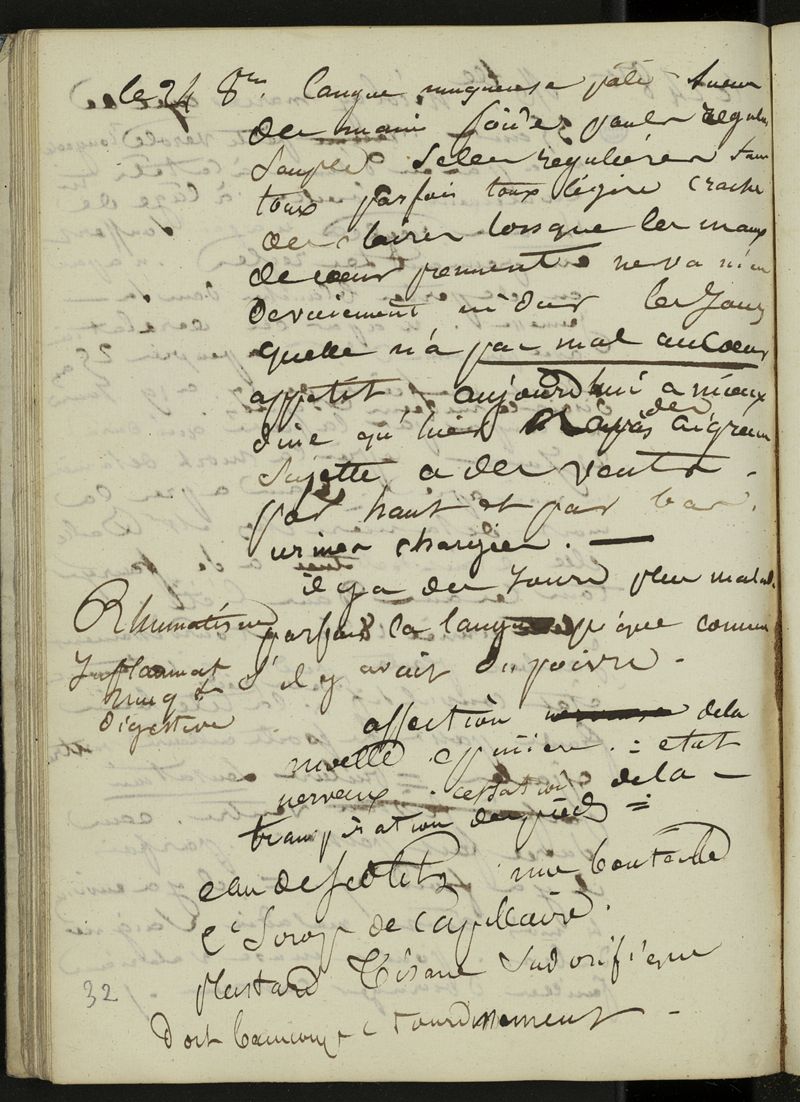 le 24 8bre. langue muqueuse pâle sueur
des mains froides pouls régulier
souple selles régulières sans
toux parfois toux légère crache
des claires lorsque les maux
de cœur prennent ne va ni en
devoiement ni dur les jours
quelle n'a pas mal au cœur
appétit - aujourdhui a mieux
diné qu'hier après des aigreurs
sujette a des vents -
par haut et par bas.
urines chargées. —
il y a des jours plus malade.
Rhumatisme
parfois la langue pique comme
s'il y avait du poivre -
Inflammat
muq
digestive
affection de la
moelle epiniere. = etat
nerveux. cessation de la -
transpiration des pieds =
eau de sedlitz une bouteille
Sirop de Capillaire.
Tisane Sudorifique
32
dort beaucoup étourdissement -